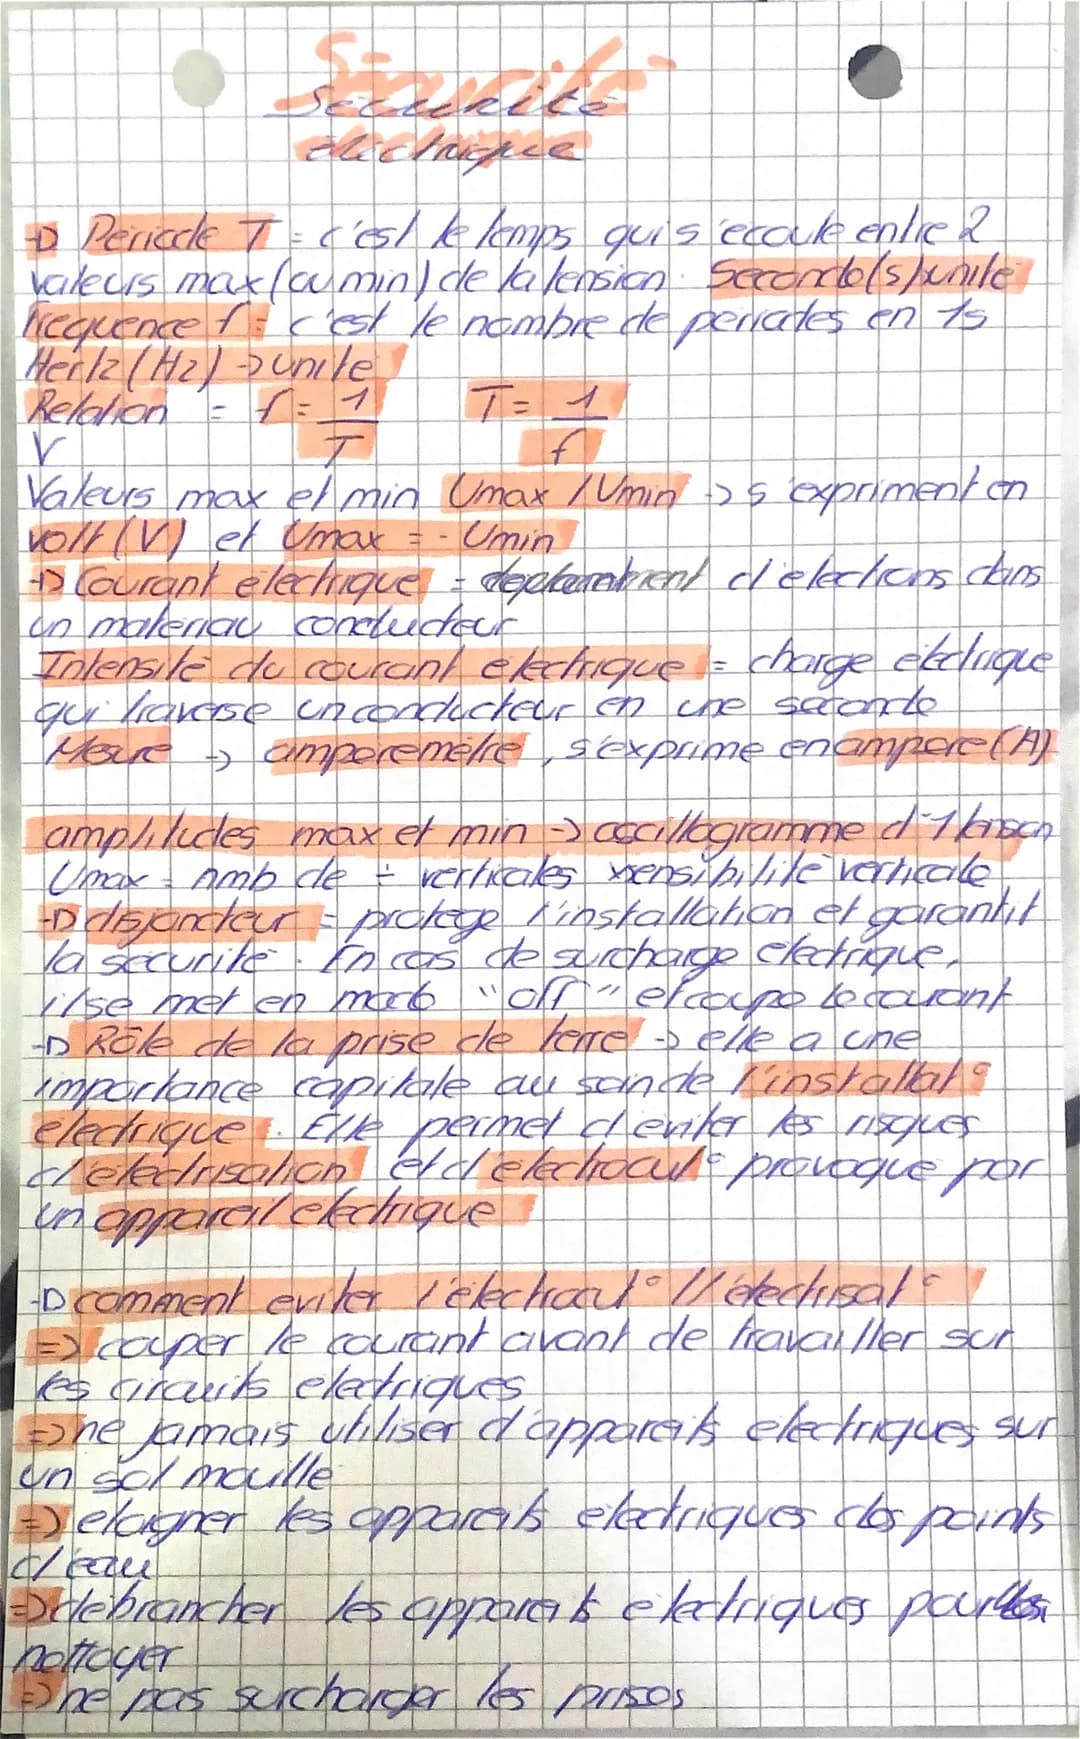 Sécurité
Sécurité
électrique
-D Periode T = c'est le temps qui s'ecoule entre 2
valeurs max (ou min) de la tension. Seconde(s) unité
frequence f = c'est le nombre de periodes en 1s
Hertz (Hz) -> unite
Relation = f = 1/T T = 1/f
V
Valeurs max et min Umax / Umin -> s'expriment en
volt (V) et Umax = - Umin
-D Courant electrique = deplacement d'electrons dans
un materiau conducteur
Intensité du courant electrique = charge électrique
qui traverse un conducteur en une seconde
Mesure -> amperemètre, s'exprime en ampere (A)
amplitudes max et min -> oscillogramme d'1 tension
Umax = nmb de ÷ verticales x sensibilité verticale
-D disjoncteur = protege l'installation et garantit
la sécurité. En cas de surcharge electrique,
il se met en mode "off" et coupe le courant
-D Rôle de la prise de terre -> elle a une
importance capitale au sein de l'installat°
électrique. Elle permet d'eviter les risques
d'électrisation et d'électrocut° provoque par
un appareil electrique
-D comment eviter l'électrocut° // électrisat°
=> couper le courant avant de travailler sur
les circuits electriques
=> ne jamais utiliser d'appareils electriques sur
un sol mouille
=> eloigner les appareils electriques des points
d'eau
=> debrancher les appareils electriques pour les
nettoyer
=> ne pas surcharger les prises